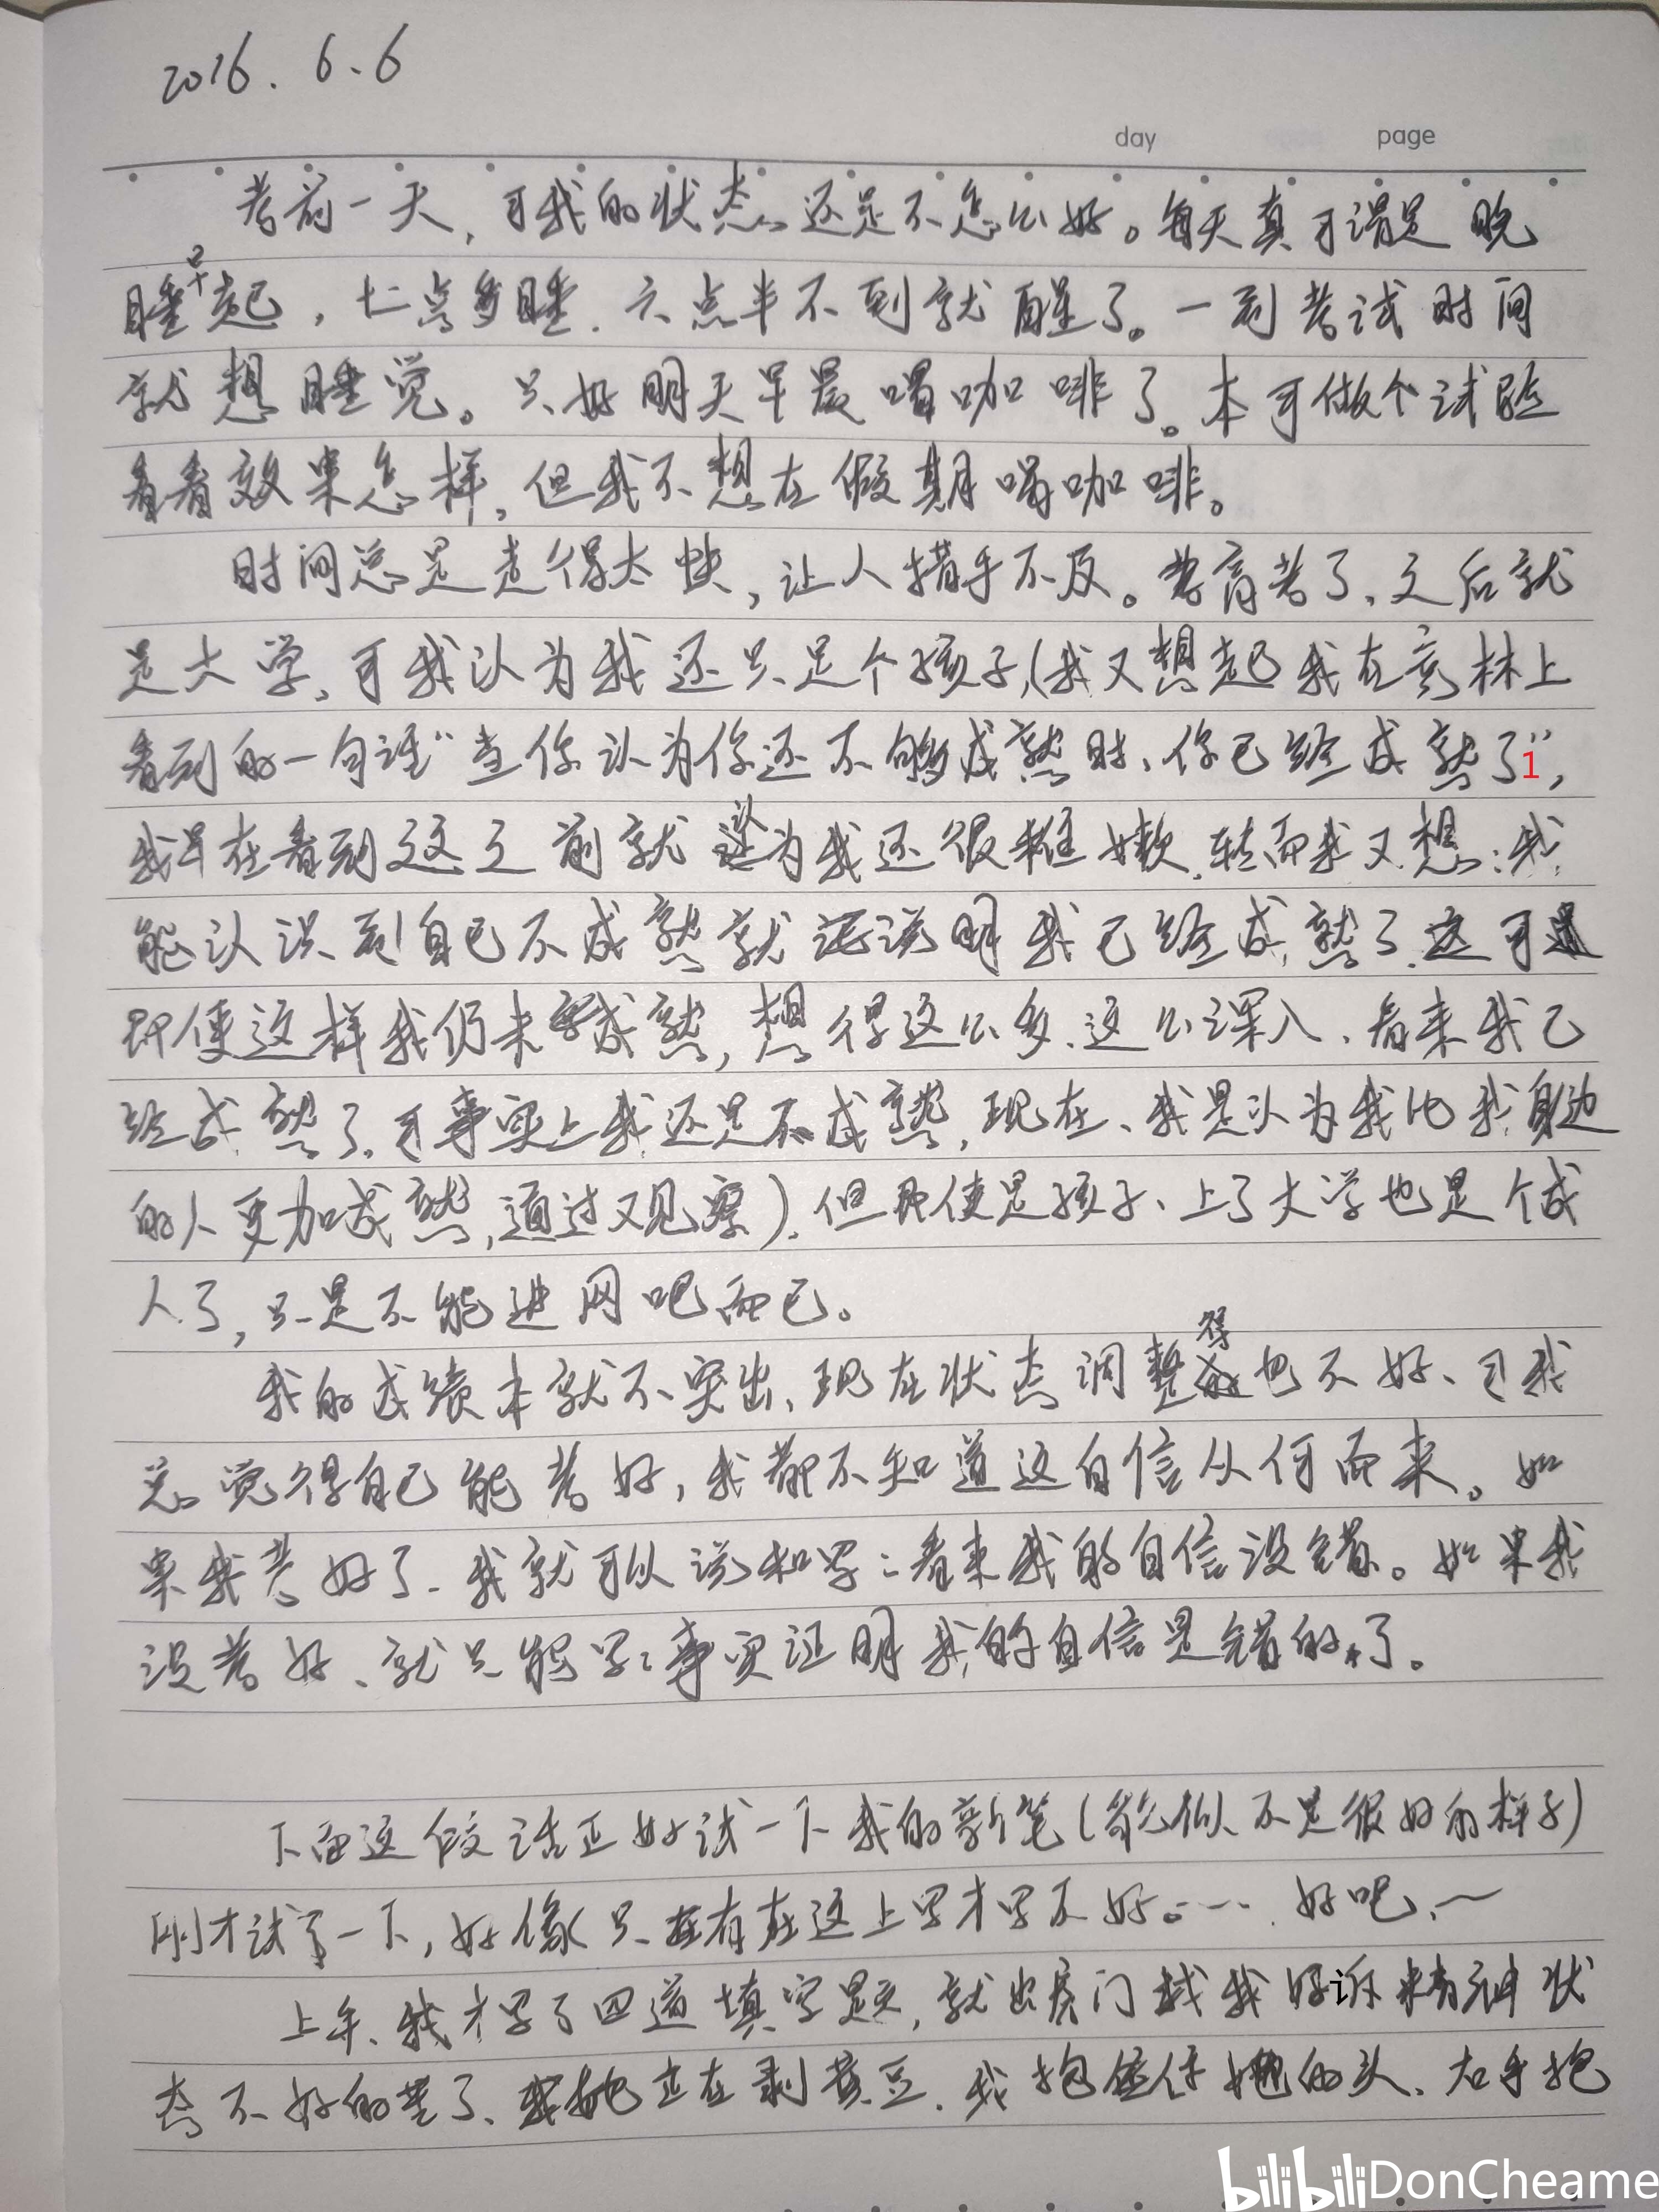 2016.6.6
day page
考前一天,可我的状态还是不怎么好。每天真可谓是晚
睡早起,十二点多睡.六点半不到就醒了。一到考试时间
就想睡觉。只好明天早晨喝咖啡了。本可做个试验
看看效果怎样,但我不想在假期喝咖啡。
时间总是走得太快,让人措手不及。要高考了、之后就
是大学,可我认为我还只是个孩子,(我又想起我在意林上
看到的一句话“当你认为你还不够成熟时、你已经成熟了”1,
我早在看到这之前就认为我还很稚嫩.转而我又想:我
能认识到自己不成熟就证说明我已经成熟了.这可
即使这样我仍未成熟,想得这么多.这么深入、看来我已
经成熟了.可事实上我还是不成熟,现在、我是认为我比我身边
的人更加成熟,通过观察).但即使是孩子、上了大学也是个成
人了,只是不能进网吧而已。
我的成绩本就不突出、现在状态调整得也不好、可我
总觉得自己能考好,我都不知道这自信从何而来。如
果我考好了.我就可以说和写:看来我的自信没错。如果我
没考好、就只能写:事实证明我的自信是错的了。
下面这段话正好试一下我的新笔(貌似不是很好的样子)
刚才试了一下,好像只有在这上写才写不好。… 好吧、~
上午、我才写了四道填字题,就出房门找我妈诉精神状
态不好的苦了、她正在剥黄豆.我抱住她的头、右手抱
bilibili DonCheame